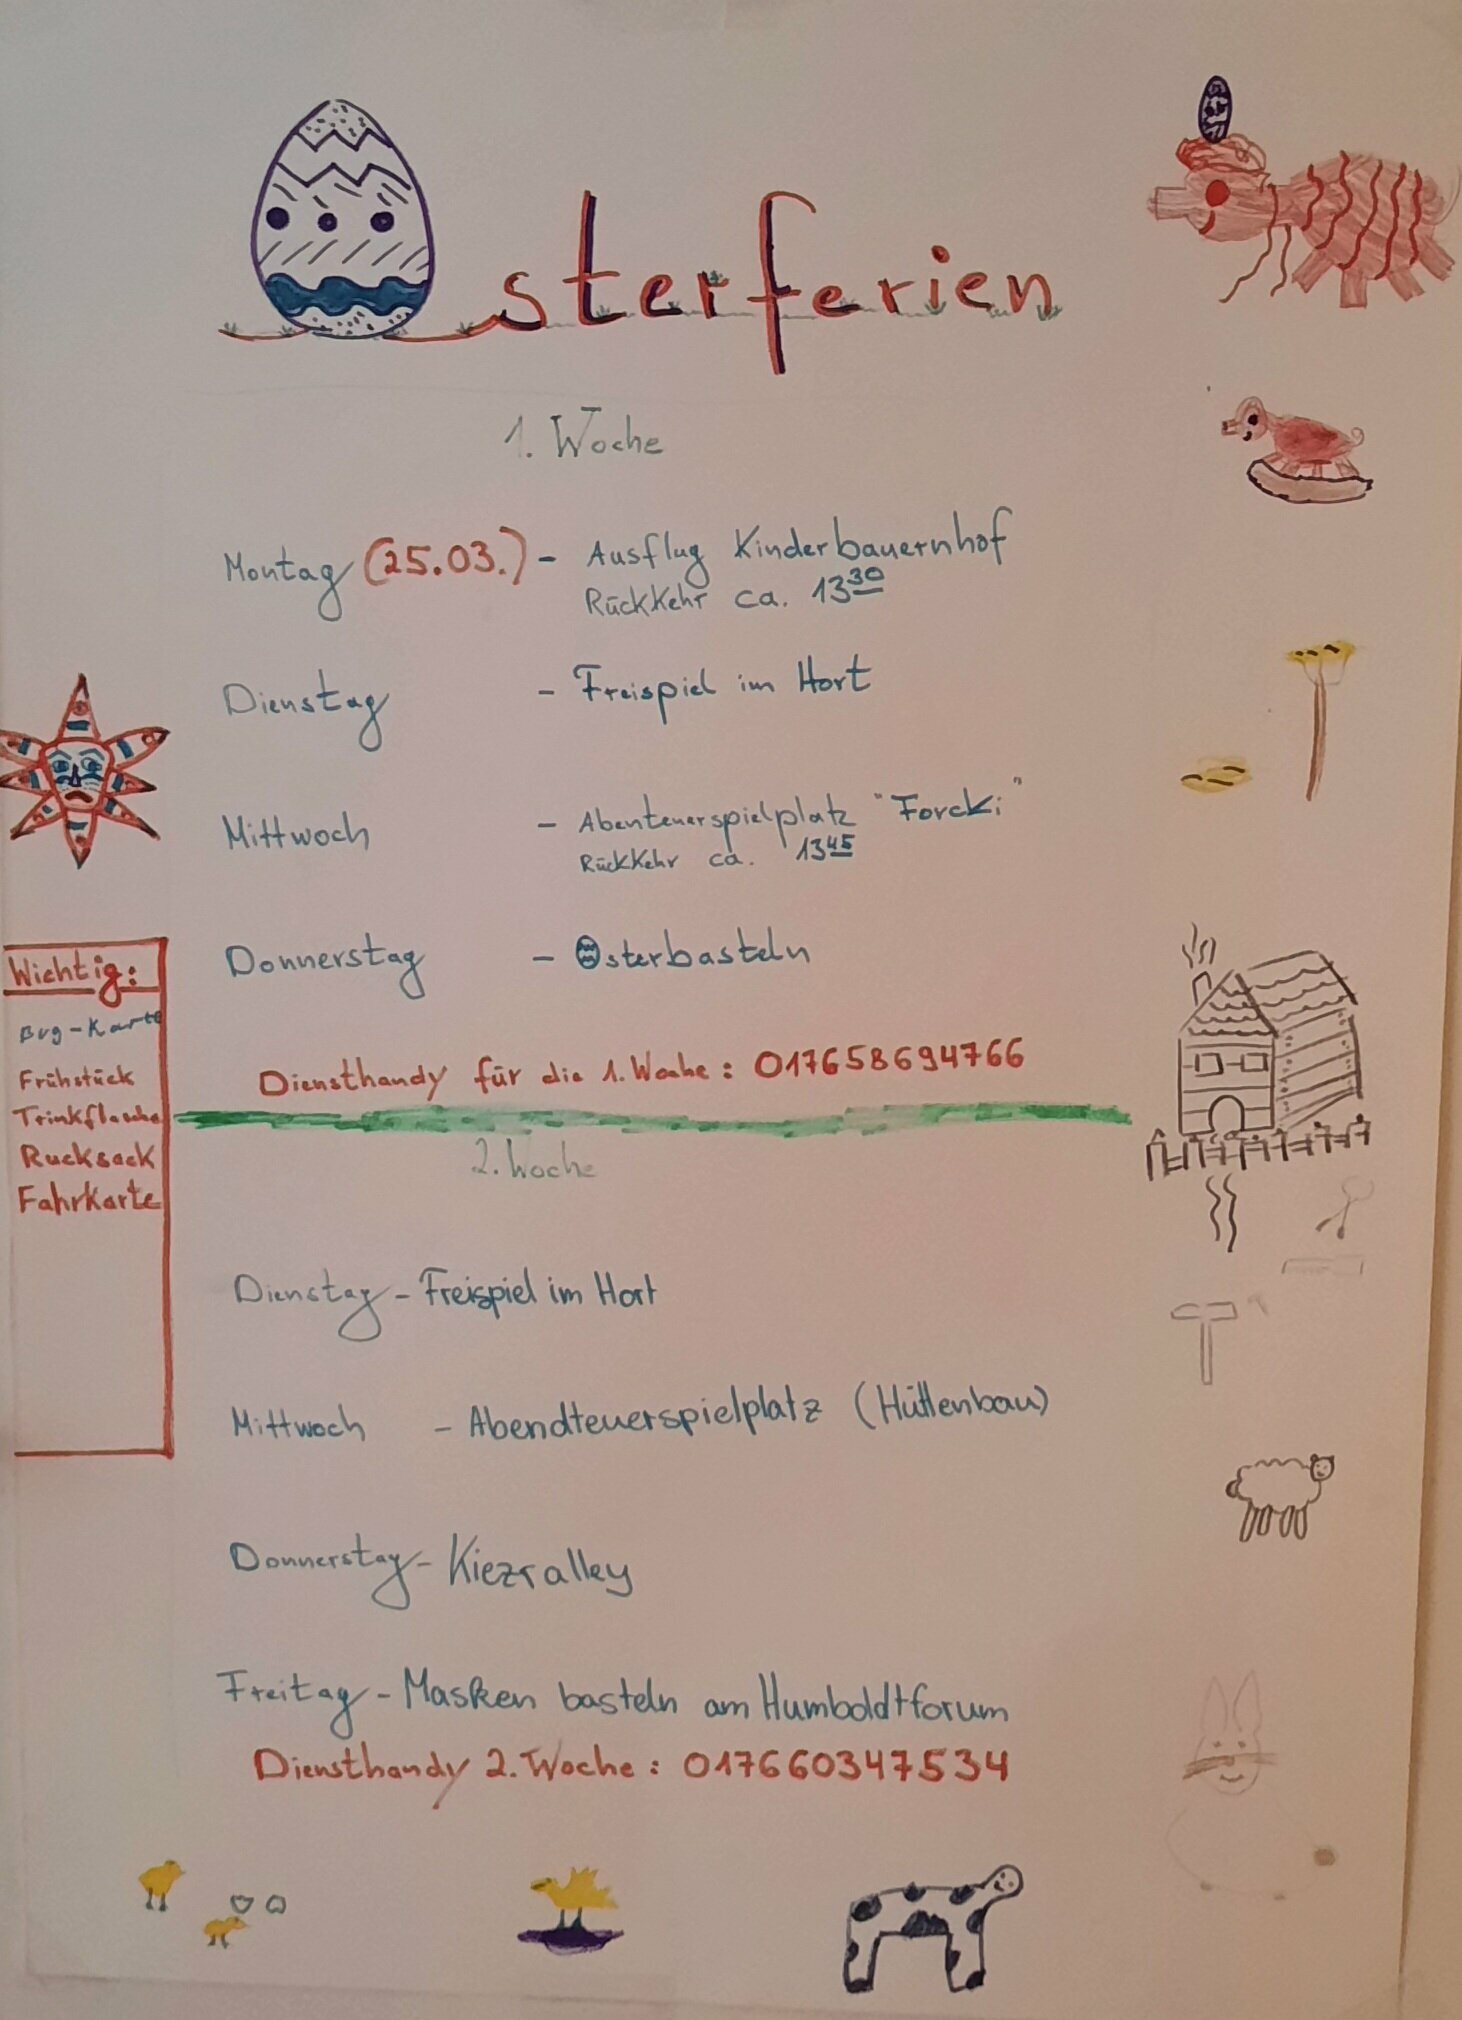 Osterferien
1. Woche
Montag (25.03.) - Ausflug Kinderbauernhof
Rückkehr ca. 13 30
Dienstag - Freispiel im Hort
Mittwoch - Abenteuerspielplatz "Forcki"
Rückkehr ca. 13 45
Donnerstag - Osterbasteln
Diensthandy für die 1. Woche: 017658694766
Wichtig:
Bvg-Karte
Frühstück
Trinkflasche
Rucksack
Fahrkarte
2. Woche
Dienstag - Freispiel im Hort
Mittwoch - Abendteuerspielplatz (Hüttenbau)
Donnerstag - Kiezralley
Freitag - Masken basteln am Humboldtforum
Diensthandy 2. Woche: 017660347534